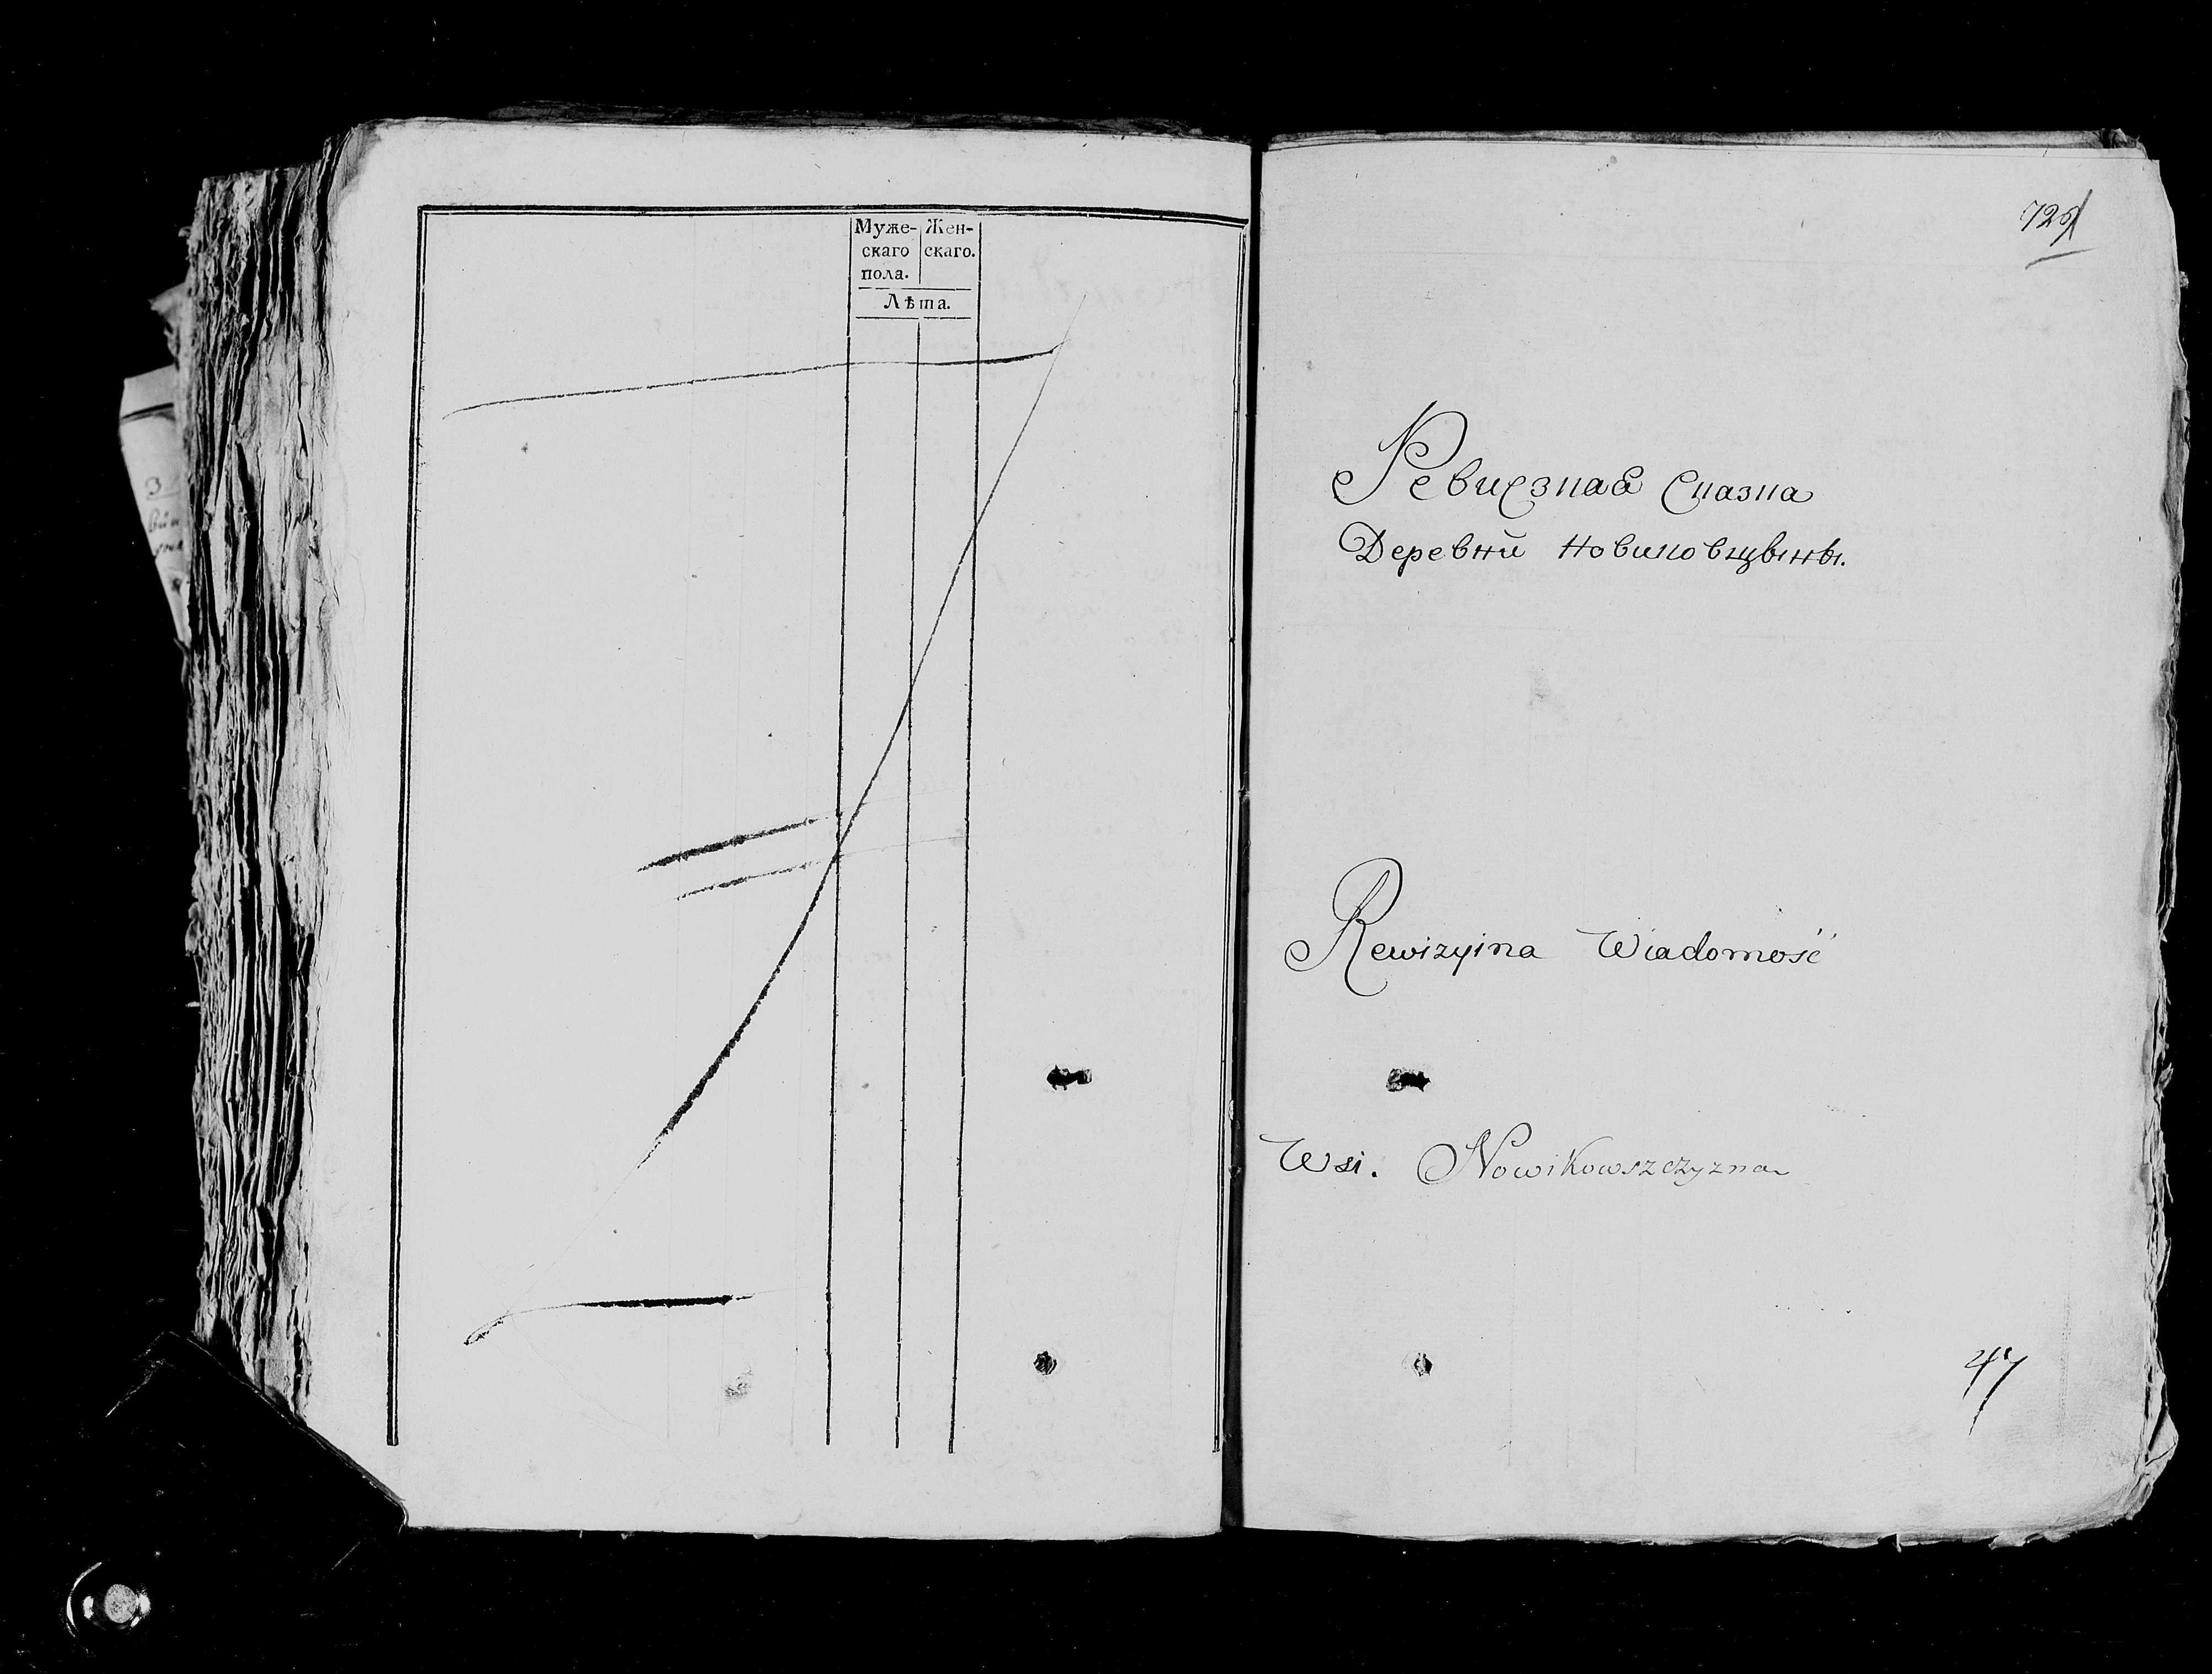 Муже- Жен-
скаго скаго.
пола.
Лѣта.
Ревизная Сказка
Деревни Новиковщизны.
Rewizyina Wiadomość
Wsi. Nowikowszczyzna
47